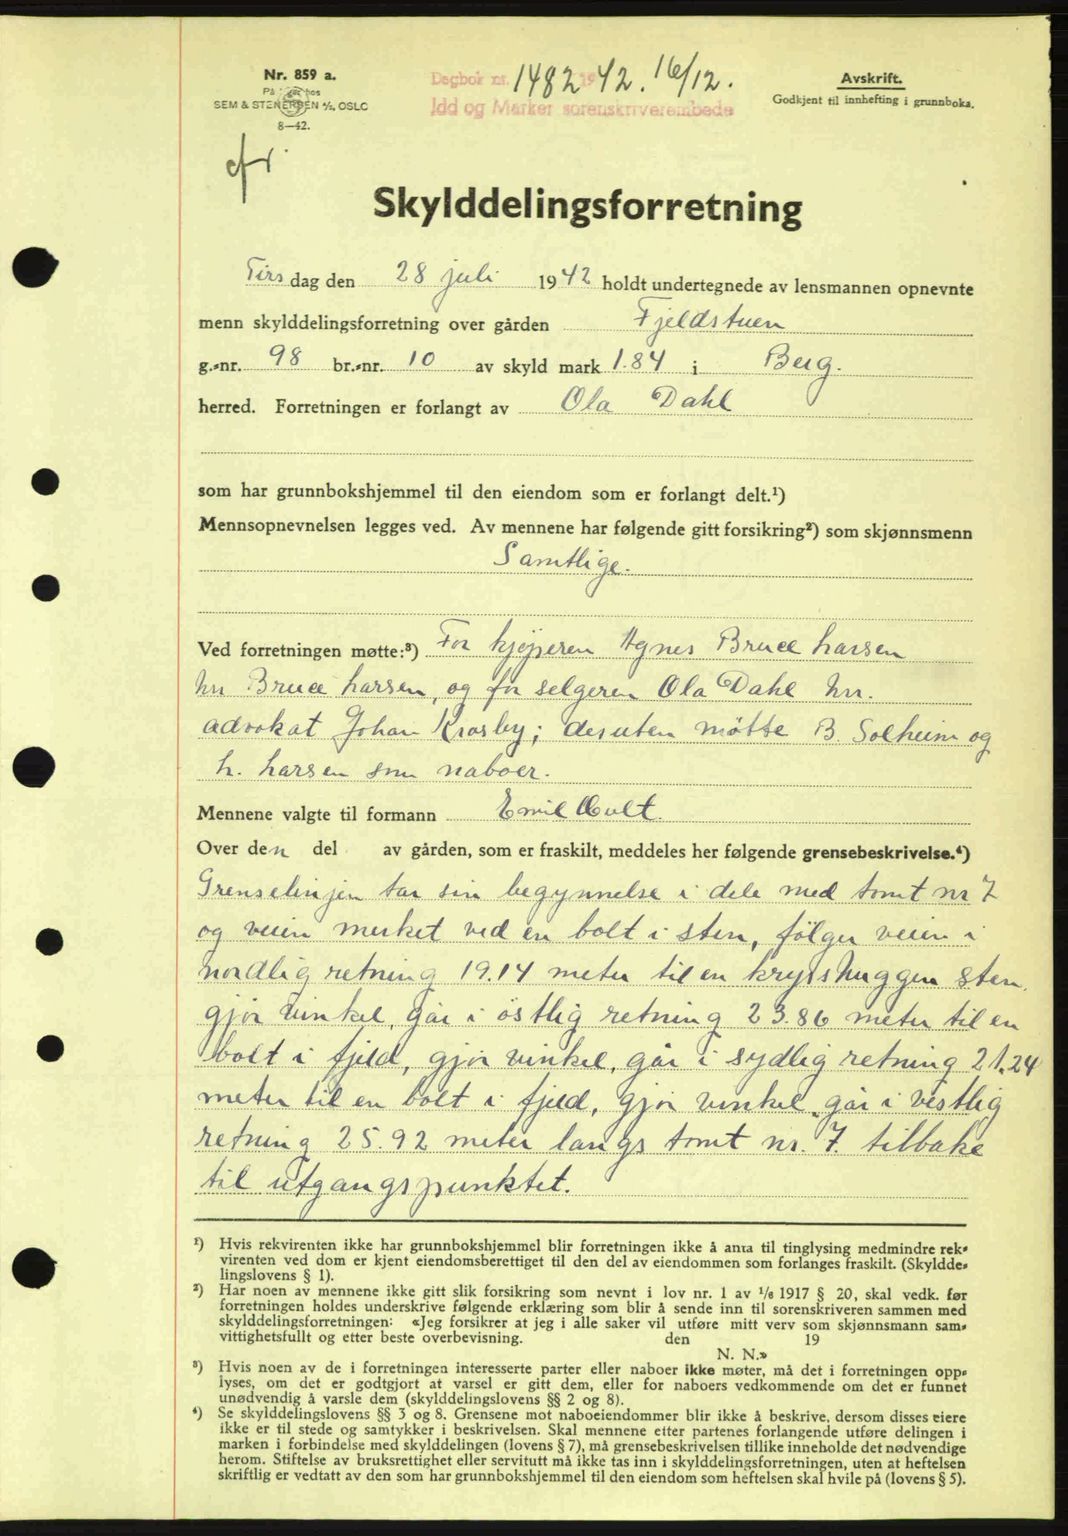 Nr. 859 a.
På lager hos
SEM & STENERSEN A/S, OSLO
8—42.
Dagbok nr. 1482 1942. 16/12.
Idd og Marker sorenskriverembede
Avskrift.
Godkjent til innhefting i grunnboka.
Skylddelingsforretning
Tirsdag den 28 juli 1942 holdt undertegnede av lensmannen opnevnte
menn skylddelingsforretning over gården Fjeldstuen
g.-nr. 98 br.-nr. 10 av skyld mark 1.84 i Berg.
herred. Forretningen er forlangt av Ola Dahl
som har grunnbokshjemmel til den eiendom som er forlangt delt.¹)
Mennsopnevnelsen legges ved. Av mennene har følgende gitt forsikring²) som skjønnsmenn
Samtlige.
Ved forretningen møtte:³) For kjøperen Agnes Bruce Larsen
hr. Bruce Larsen, og for selgeren Ola Dahl hr.
advokat Johan Krosby; desuten møtte B. Solheim og
h. Larsen som naboer.
Mennene valgte til formann Emil Hult.
Over den del av gården, som er fraskilt, meddeles her følgende grensebeskrivelse.⁴)
Grenselinjen tar sin begynnelse i dele med tomt nr 7
og veien merket ved en bolt i sten, følger veien i
nordlig retning 19.14 meter til en krysshuggen sten,
gjør vinkel, går i östlig retning 23.86 meter til en
bolt i fjeld, gjör vinkel, går i sydlig retning 21,24
meter til en bolt i fjeld, gjör vinkel, går i vestlig
retning 25.92 meter langs tomt nr. 7. tilbake
til utgangspunktet.
¹) Hvis rekvirenten ikke har grunnbokshjemmel blir forretningen ikke å anta til tinglysing medmindre rek-
virenten ved dom er kjent eiendomsberettiget til den del av eiendommen som forlanges fraskilt. (Skyldde-
lingslovens § 1).
²) Har noen av mennene ikke gitt slik forsikring som nevnt i lov nr. 1 av 1/6 1917 § 20, skal vedk. før
forretningen holdes underskrive følgende erklæring som blir å sende inn til sorenskriveren sammen med
skylddelingsforretningen: «Jeg forsikrer at jeg i alle saker vil utføre mitt verv som skjønnsmann sam-
vittighetsfullt og etter beste overbevisning. den 19
N. N.»
³) Hvis noen av de i forretningen interesserte parter eller naboer ikke møter, må det i forretningen opp-
lyses, om det er godtgjort at varsel er gitt dem, eller for naboers vedkommende om det er funnet
unødvendig å varsle dem (skylddelingslovens §§ 2 og 8).
⁴) Se skylddelingslovens §§ 3 og 8. Grensene mot naboeiendommer blir ikke å beskrive, dersom disses eiere
ikke er til stede og samtykker i beskrivelsen. Skal mennene etter partenes forlangende utføre delingen i
marken i forbindelse med skylddelingen (lovens § 7), må grensebeskrivelsen tillike inneholde det nødvendige
herom. Stiftelse av bruksrettighet eller servitutt må ikke tas inn i skylddelingsforretningen, uten at heftelsen
skriftlig er vedtatt av den som har grunnbokshjemmel til den eiendom som heftelsen skal hvile på (lovens § 5).